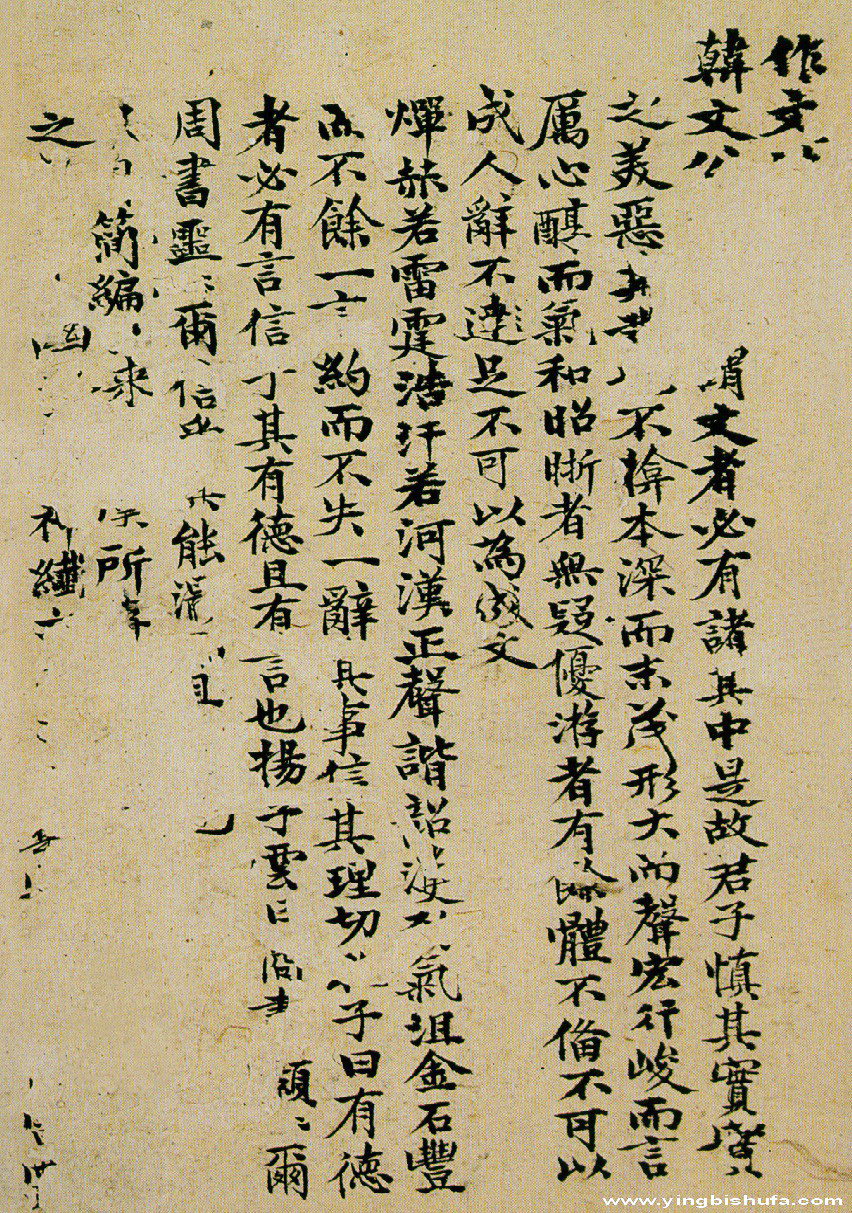 作文
韓文公
謂文者必有諸其中是故君子慎其實實
之美惡 不揜本深而末茂形大而聲宏行峻而言
厲心醇而氣和昭晰者無疑優游者有餘體不備不可以
成人辭不達足不可以為成文
燀赫若雷霆浩汗若河漢正聲諧韶濩 氣沮金石豐
而不餘一言約而不失一辭其事信其理切 子曰有德
者必有言信 其有德且有言也揚子雲曰商書 顥〻爾
周書噩〻爾信 能
簡編 來 所
之 纖
www.yingbishufa.com